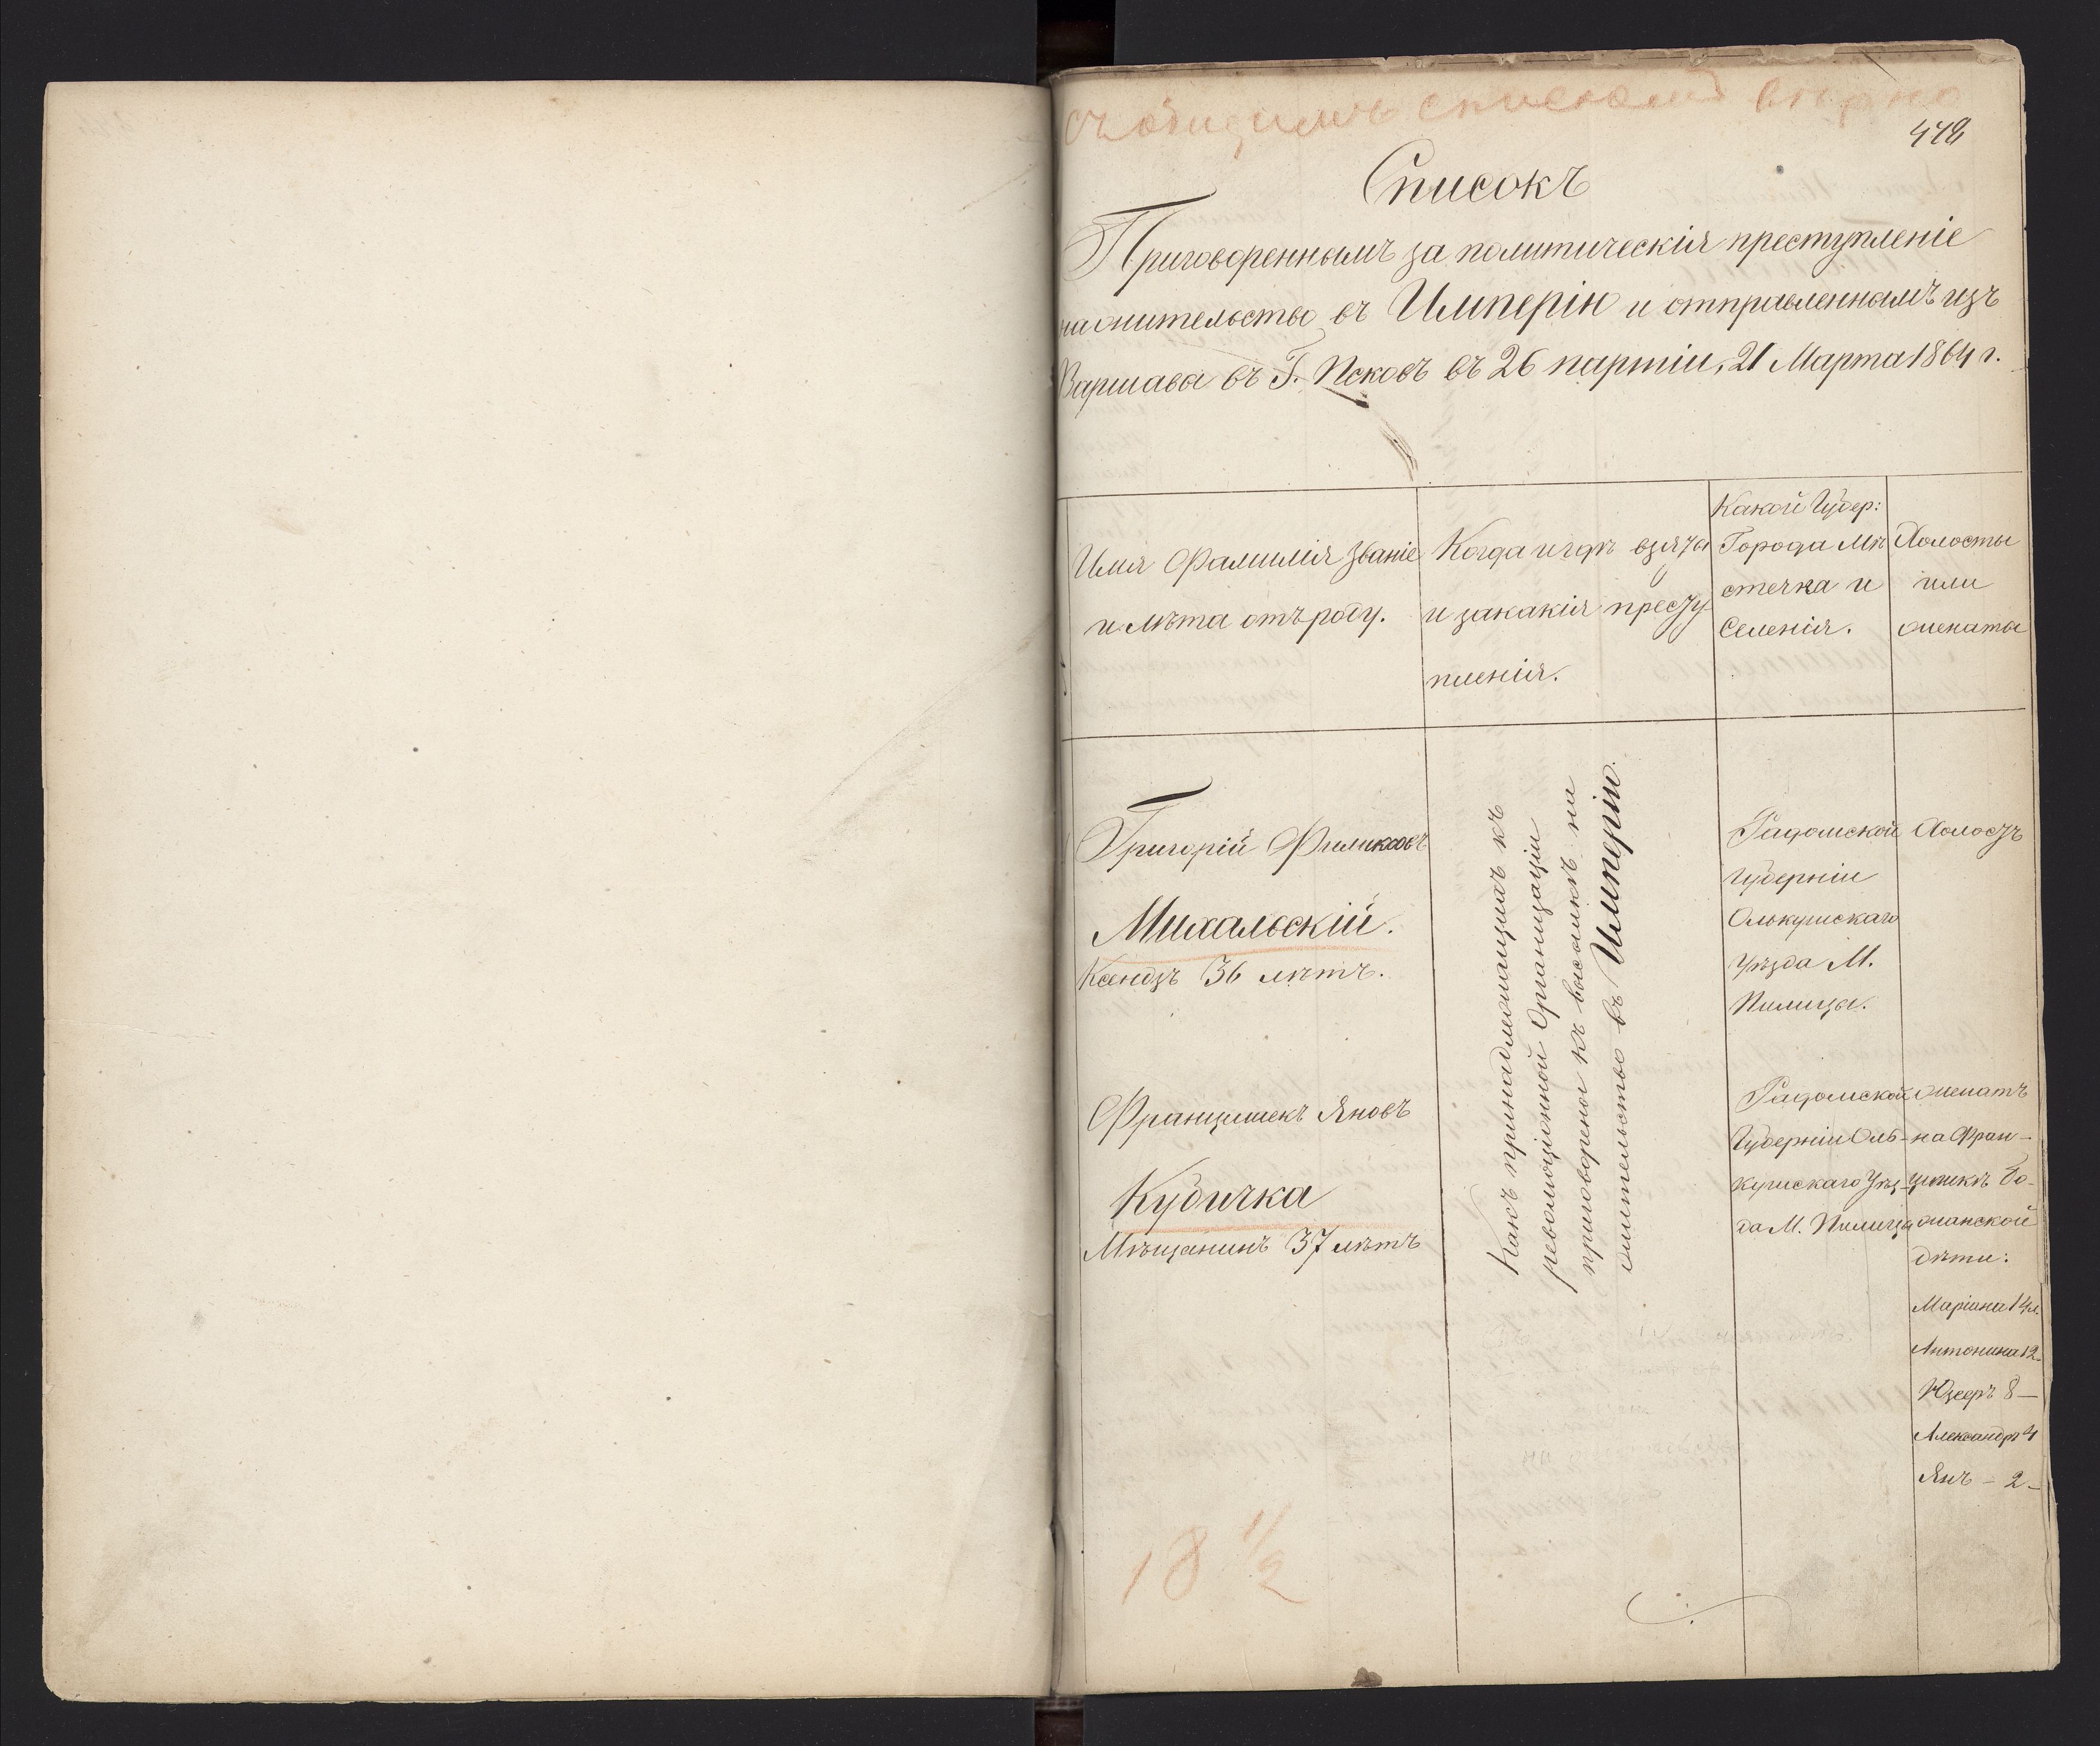 съ общимъ спискомъ вѣрно
442
Списокъ
Приговореннымъ за политическія преступленіе
на жительство въ Имперію и отправленнымъ изъ
Варшавы въ Г. Псковъ въ 26 партіи, 21 Марта 1864 г.
Имя Фамилія Званіе
и лѣта отъ роду.
Когда и гдѣ взяты
и за какія престу
пленія.
Какой Губер:
Города Мѣ
стечка и
Селенія.
Холосты
или
женаты
Григорій Филиксовъ
Михальскій.
Ксендзъ 36 лѣтъ.
Какъ принадлежащихъ къ
революціонной Организаціи
приговорены къ высылкѣ на
жительство въ Имперію.
Радомской
Губерніи
Олькушскаго
Уѣзда М.
Пилицы.
Холостъ
Францишекъ Яновъ
Кубичка
Мѣщанинъ 37 лѣтъ
Радомской
Губерніи Оль-
кушскаго Уѣз-
да М. Пилица
женатъ
на Фран-
цишкѣ Бо-
жанской
дѣти:
Маріяна 14 л.
Антонина 12-
Юзефъ 8-
Александръ 4
Янъ - 2-
18 1/2